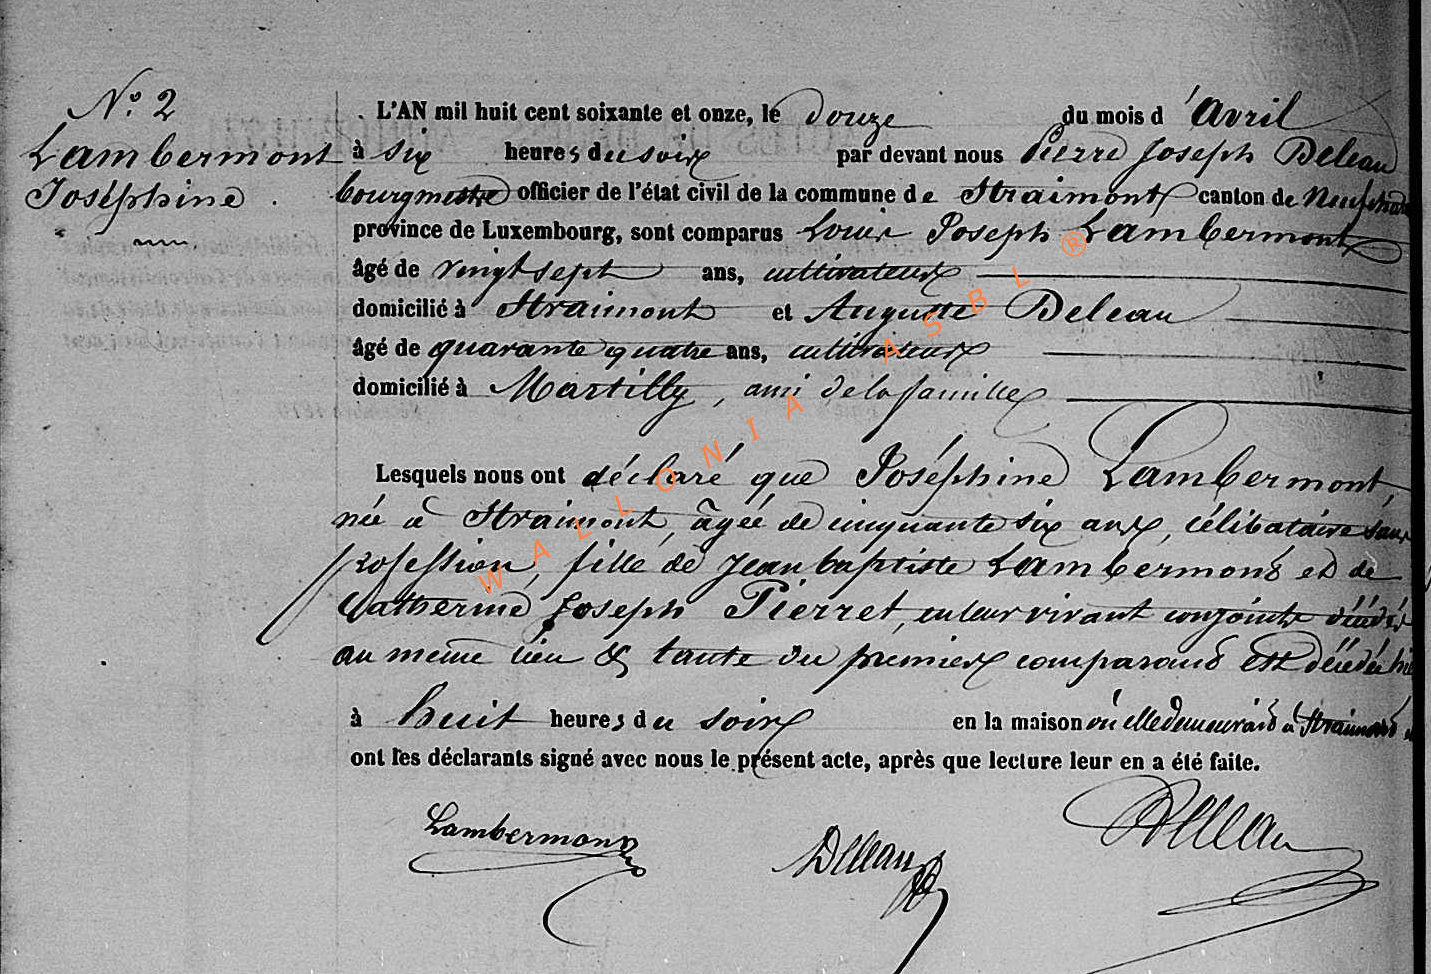 N° 2
Lambermont
Joséphine.
L'AN mil huit cent soixante et onze, le douze du mois d'Avril
à six heures du soir par devant nous Pierre Joseph Deleau
bourgmestre officier de l'état civil de la commune de Straimont canton de
province de Luxembourg, sont comparus Louis Joseph Lambermont
âgé de vingt sept ans, cultivateur
domicilié à Straimont et Auguste Deleau
âgé de quarante quatre ans, cultivateur
domicilié à Martilly, ami de la famille
Lesquels nous ont déclaré que Joséphine Lambermont,
née à Straimont, âgée de cinquante six ans, célibataire sans
profession, fille de Jean baptiste Lambermont et de
Catherine Joseph Pierret, en leur vivant conjoints décédés
au même lieu & tante du premier comparant est décédée hier
à huit heures du soir en la maison où elle demeurait à Straimont
ont les déclarants signé avec nous le présent acte, après que lecture leur en a été faite.
Lambermont
Deleau
Deleau
WALLONIA ASBL ®